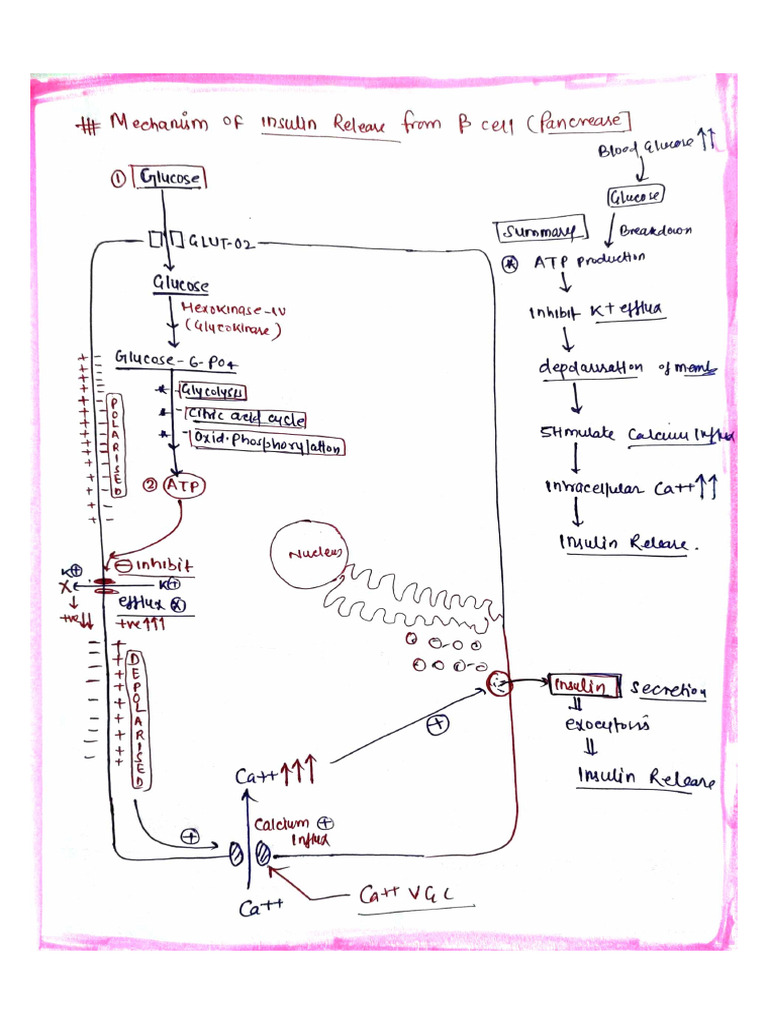 ## Mechanism of insulin Release from B cell (Pancrease]
① Glucose
GLUT-02
Glucose
Hexokinase-IV
(Glycokinase)
Glucose-6-PO4
* Glycolysis
* Citric acid cycle
* Oxid.Phosphorylation
POLARISED
② ATP
⊖ inhibit
K⊕
K⊕
X
efflux ⊗
+ve↓↓
+ve↑↑↑
DEPOLARISED
Nucleus
Insulin secretion
exocytosis
Insulin Release
⊕
Ca++ ↑↑↑
⊕
Calcium ⊕
Influx
Ca++
Ca++ VGC
Blood Glucose ↑↑
Glucose
Summary
Breakdown
* ATP production
Inhibit K+ efflux
depolarisation of memb
Stimulate Calcium Influx
Intracellular Ca++ ↑↑
Insulin Release.